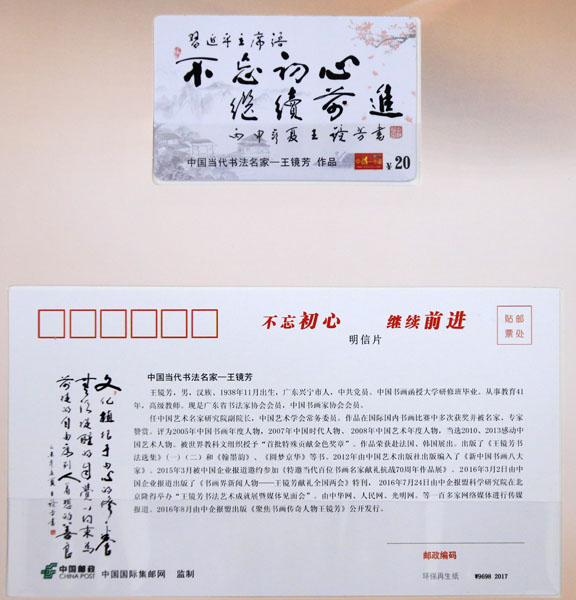 習近平主席語
不忘初心
继續前進
丙申年夏王镜芳書
中国当代书法名家—王镜芳 作品
¥20
不忘初心 继续前进
明信片
贴邮
票处
中国当代书法名家—王镜芳
王镜芳，男，汉族，1938年11月出生，广东兴宁市人，中共党员。中国书画函授大学研修班毕业。从事教育41
年，高级教师。现是广东省书法家协会会员，中国书画家协会会员。
任中国艺术名家研究院副院长，中国艺术学会常务委员。作品在国际国内书画比赛中多次获奖并被名家、专家
赞赏。评为2005年中国书画年度人物，2007年中国时代人物、2008年中国艺术年度人物，当选2010、2013感动中
国艺术人物。被世界教科文组织授予“首批特殊贡献金色奖章”。作品荣获赴法国、韩国展出。出版了《王镜芳书
法选集》（一）（二）和《翰墨韵》、《圆梦京华》等书。2012年由中国艺术出版社出版编入了《新中国书画八大
家》。2015年3月被中国企业报道邀约参加《特邀当代百位书画名家献礼抗战70周年作品展》。2016年3月2日由中
国企业报道出版了《书画界新闻人物——王镜芳献礼全国两会》特刊，2016年7月24日由中企报盟科学研究院在北
京隆得举办“王镜芳书法艺术成就展暨媒体见面会”。由中华网、人民网、光明网。等一百多家网络媒体进行传媒
报道。2016年8月由中企报盟出版《聚焦书画传奇人物王镜芳》公开发行。
文化植根于内心的修养
無需提醒的自覺 以约束為
前提的自由 為别人着想的善良
邮政编码
中国邮政
CHINA POST
中国国际集邮网 监制
环保再生纸 W9698 2017